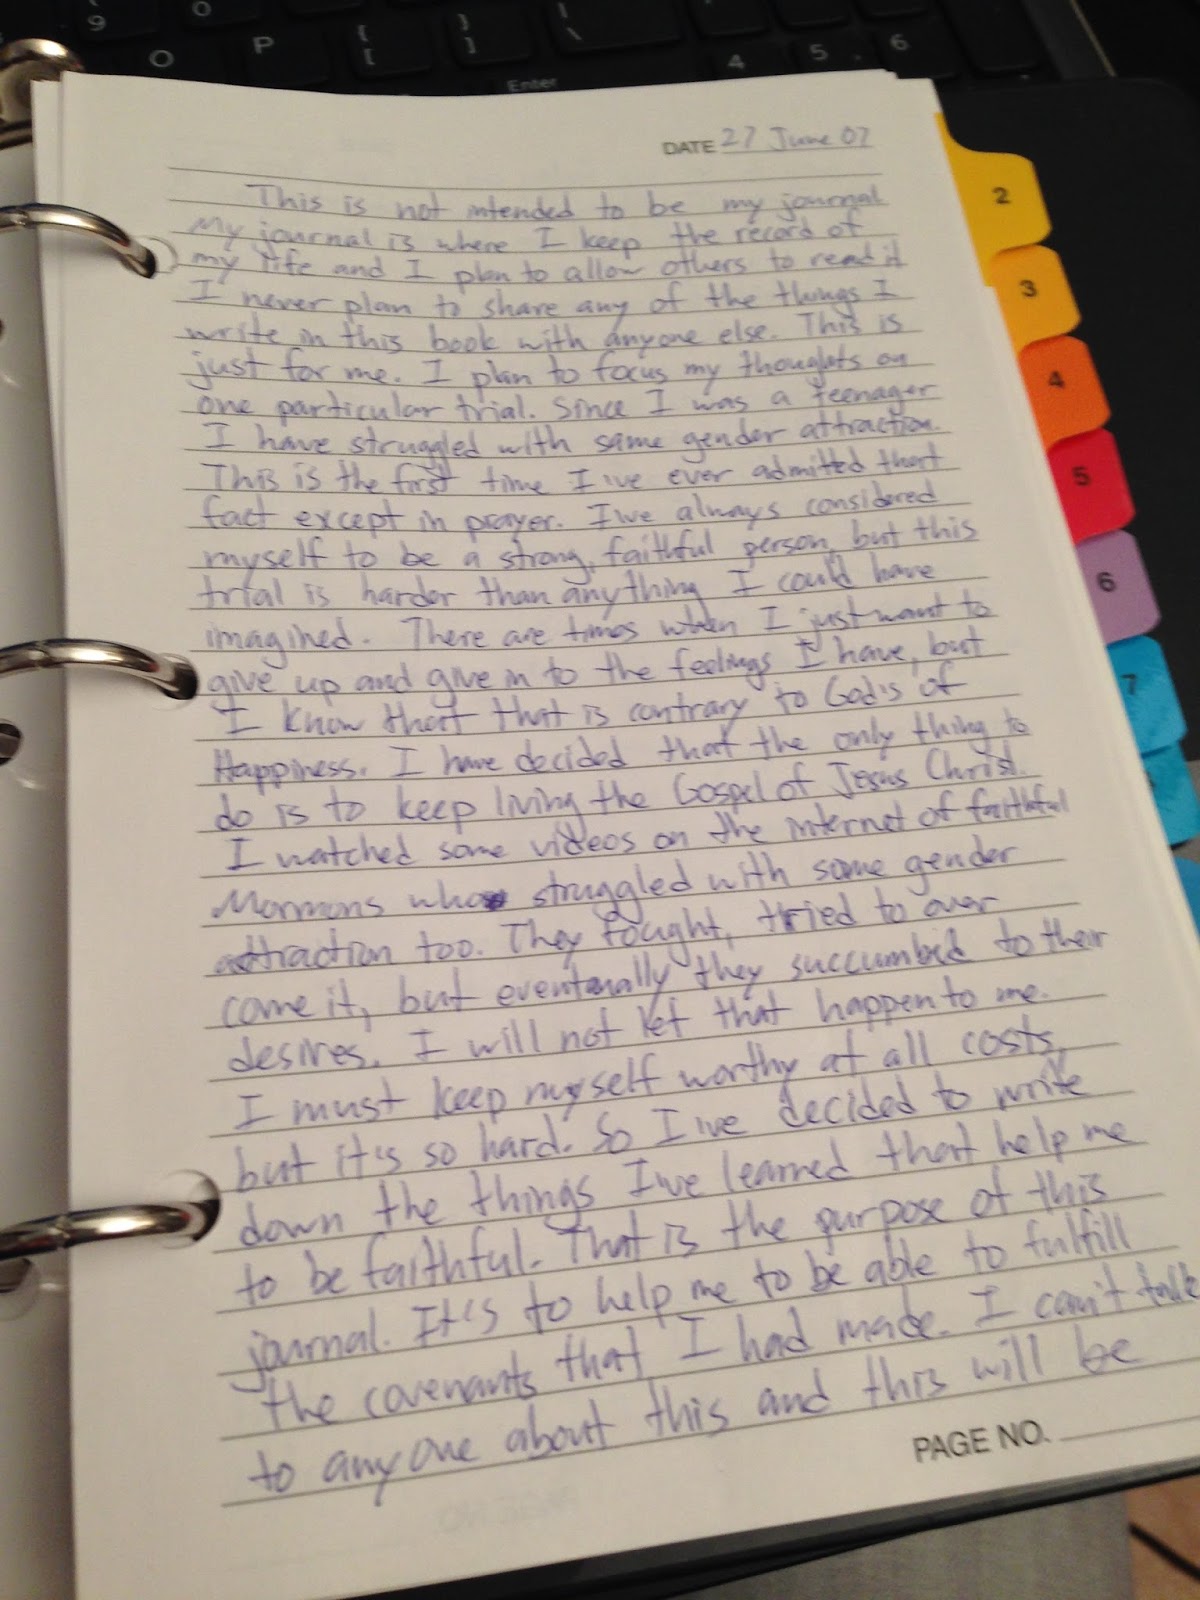 9
O
P
{
[
}
]
|
\
Enter
4
5
6
DATE 27 June 07
This is not intended to be my journal
My journal is where I keep the record of
my life and I plan to allow others to read it
I never plan to share any of the things I
write in this book with anyone else. This is
just for me. I plan to focus my thoughts on
one particular trial. Since I was a teenager
I have struggled with same gender attraction.
This is the first time I've ever admitted that
fact except in prayer. I've always considered
myself to be a strong, faithful person, but this
trial is harder than anything I could have
imagined. There are times when I just want to
give up and give in to the feelings I have, but
I know that that is contrary to God's of
Happiness. I have decided that the only thing to
do is to keep living the Gospel of Jesus Christ.
I watched some videos on the internet of faithful
Mormons who struggled with same gender
attraction too. They fought, tried to over
come it, but eventually they succumbed to their
desires. I will not let that happen to me.
I must keep myself worthy at all costs,
but it's so hard. So I've decided to write
down the things I've learned that help me
to be faithful. That is the purpose of this
journal. It's to help me to be able to fulfill
the covenants that I had made. I can't talk
to anyone about this and this will be
PAGE NO.
2
3
4
5
6
7